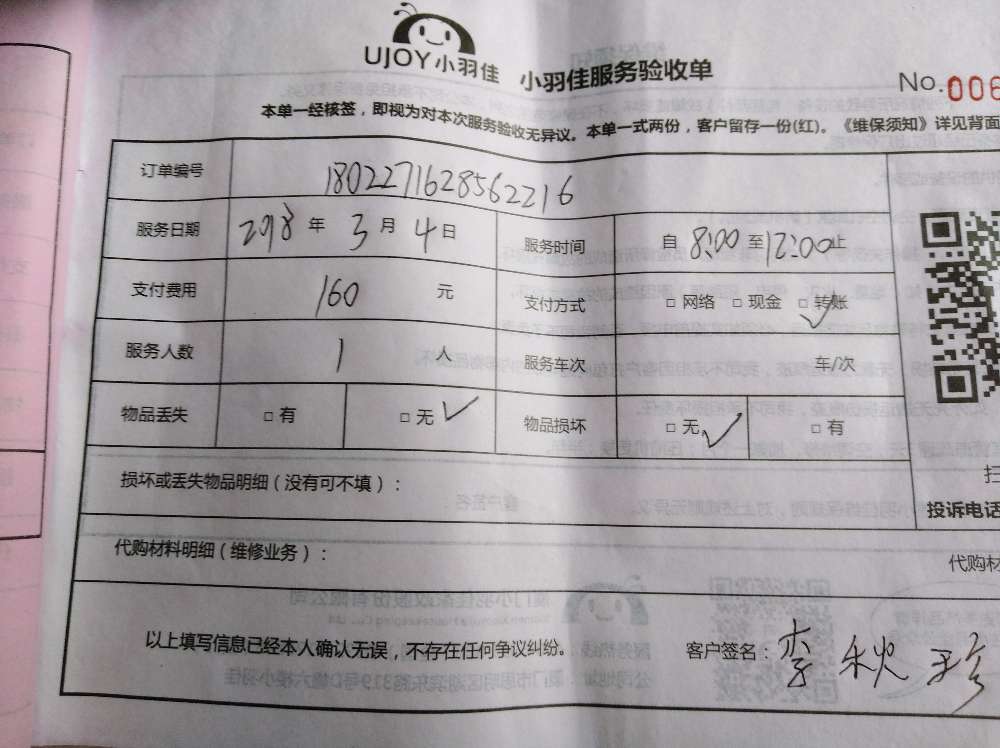 UJOY小羽佳 小羽佳服务验收单
No.006
本单一经核签，即视为对本次服务验收无异议。本单一式两份，客户留存一份(红)。《维保须知》详见背面
订单编号 1802271628562216
服务日期 2018年3月4日 服务时间 自8:00至12:00止
支付费用 160 元 支付方式 □网络 □现金 □转账
服务人数 1 人 服务车次 车/次
物品丢失 □有 □无 ✓ 物品损坏 □无 ✓ □有
损坏或丢失物品明细（没有可不填）：
扫
投诉电话
代购材料明细（维修业务）：
代购材
以上填写信息已经本人确认无误，不存在任何争议纠纷。 客户签名：李秋珍